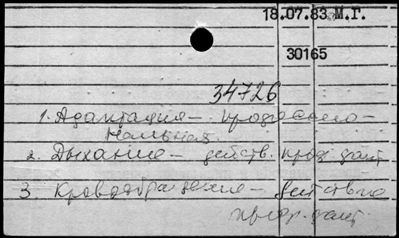 18.07.83 М.Г.
30165
34726
1. Адаптация – профессио-
нальная
2. Дыхание – действ. проф. факт.
3. Кровообращение – действие
проф. факт.